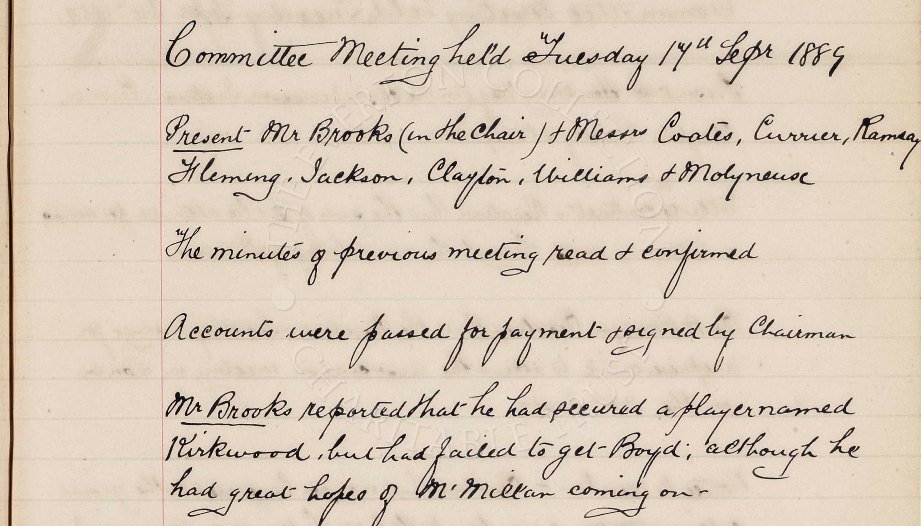 Committee Meeting held Tuesday 17th Sepr 1889
Present Mr Brooks (in the Chair) & Messrs Coates, Currier, Ramsay
Fleming, Jackson, Clayton, Williams & Molyneux
The minutes of previous meeting read & confirmed
Accounts were passed for payment & signed by Chairman
Mr Brooks reported that he had secured a player named
Kirkwood, but had failed to get Boyd; although he
had great hopes of McMillan coming on -
THE EVERTON COLLECTION
CHARITABLE TRUST